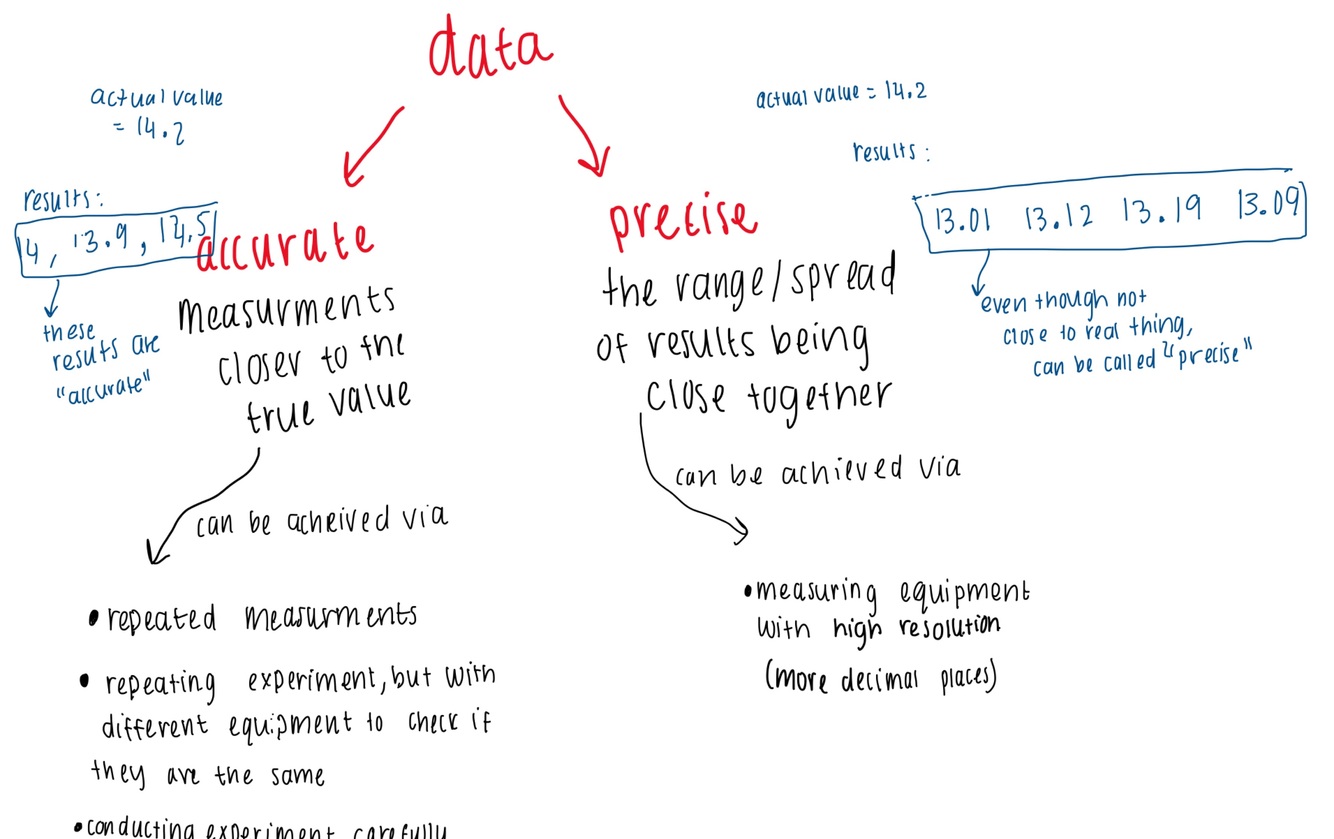 data
actual value
= 14.2
results:
14, 13.9, 14.5
these
results are
"accurate"
accurate
measurments
closer to the
true value
can be acheived via
• repeated measurments
• repeating experiment, but with
different equipment to check if
they are the same
• conducting experiment carefully
actual value = 14.2
results:
13.01 13.12 13.19 13.09
even though not
close to real thing,
can be called "precise"
precise
the range/spread
of results being
close together
can be achieved via
• measuring equipment
with high resolution
(more decimal places)